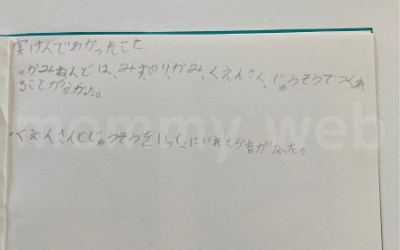 実けんでわかったこと
。かみねんどは、みず、のり、かみ、くえんさん、じゅうそうでつくれ
ることが分かった。
・くえんさんとじゅうそうをいっしょにいれたら音がなった。
mommy web